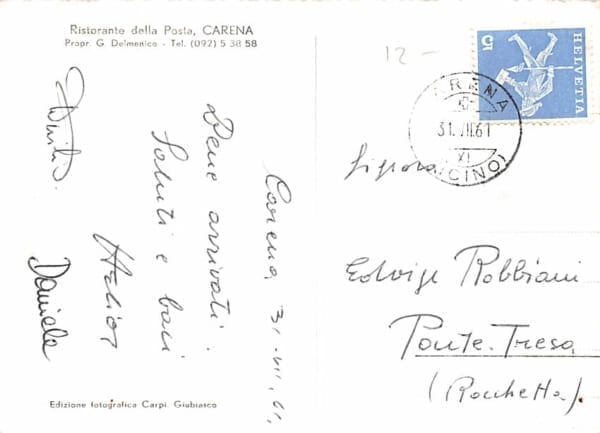 Ristorante della Posta, CARENA
Propr. G. Delmenico - Tel. (092) 5 38 58
Carena, 31.VII.61,
Bene arrivati.
Saluti e baci
Helios
Daniele
12 -
HELVETIA
5
CARENA
31.VII.61
XI
(TICINO)
Signora
Edvige Robbiani
Ponte-Tresa
(Rocchetta).
Edizione fotografica Carpi. Giubiasco